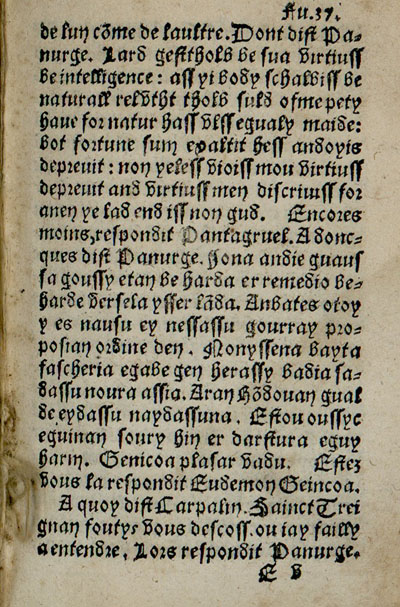 Fu.37.
de lun cõme de laultre. Dont dist Pa-
nurge. Lard gesttholb be sua virtiuss
be intelligence: ass yi body schalbiss be
naturall relvtht tholb suld ofme pety
haue for natur hass vlss egualy maide:
bot fortune sum exaltit hess andoyis
depreuit: non yeless vioiss mou virtiuss
depreuit and virtiuss men discriuiss for
anen ye lad end iss non gud. Encores
moins, respondit Pantagruel. A donc-
ques dist Panurge. Jona andie guaus
sa goussy etan be harda er remedio be-
harde versela ysser lãda. Anbates otoy
y es nausu ey nessassu gourray pro-
posian ordine den. Nonyssena bayta
fascheria egabe gen herassy badia sa-
dassu noura assia. Aran hõdouan gual
de eydassu naydassuna. Estou oussyc
eguinan soury hin er darstura eguy
harm. Genicoa plasar vadu. Estez
vous la respondit Eudemon Geincoa.
A quoy dist Carpalin. Sainct Trei
gnan foutys vous descoss. ou iay failly
a entendre. Lors respondit Panurge.
E v